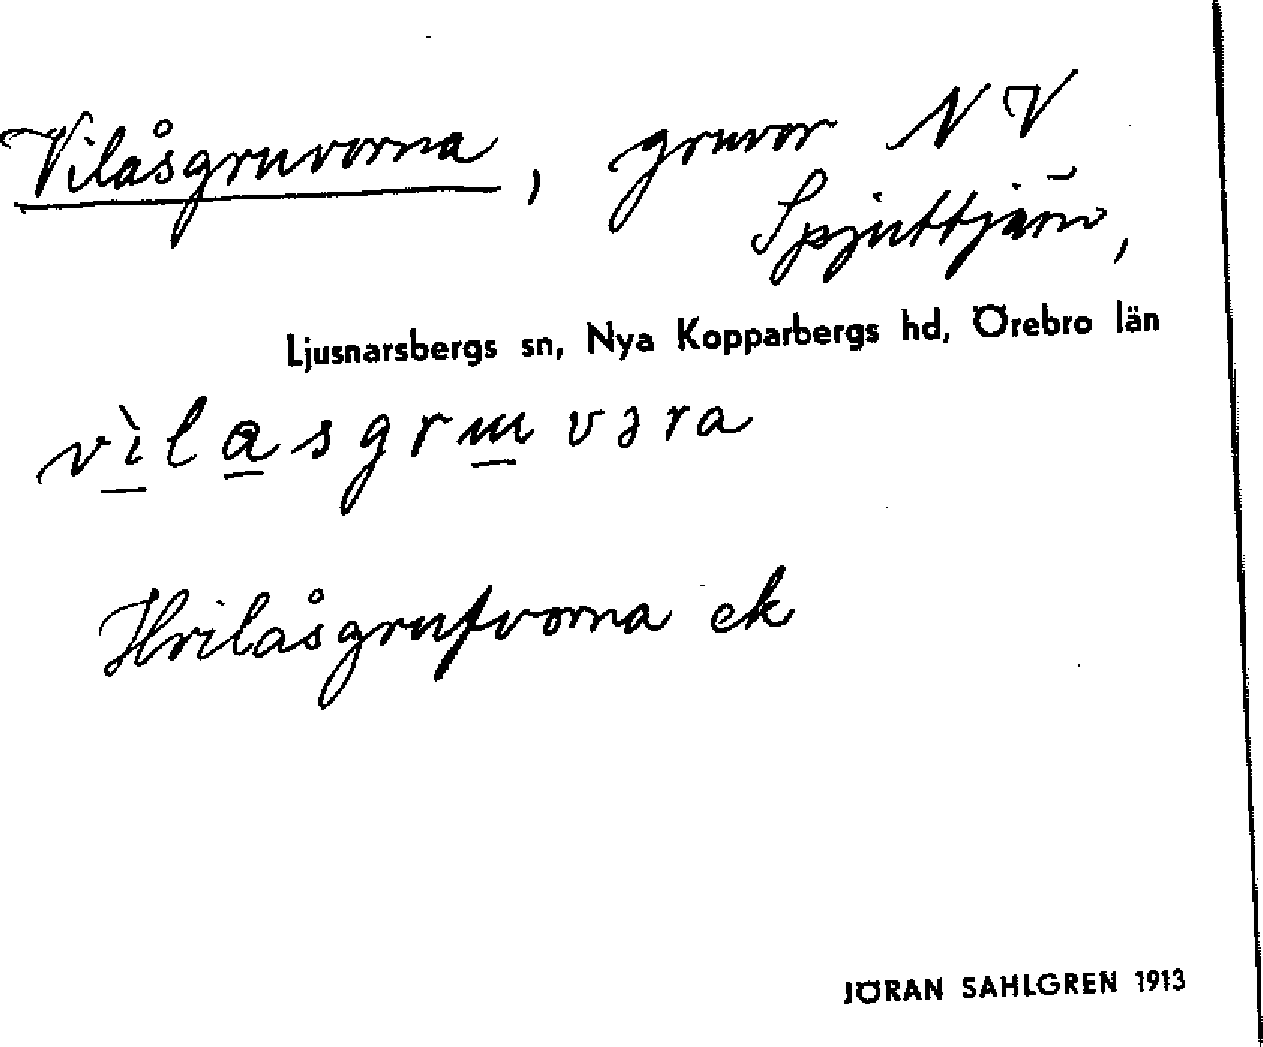 Vilåsgruvorna, gruvor NV
Spjuttjärn,
Ljusnarsbergs sn, Nya Kopparbergs hd, Örebro län
vìlasgrɯvɔra
Hvilåsgrufvorna ek
JÖRAN SAHLGREN 1913